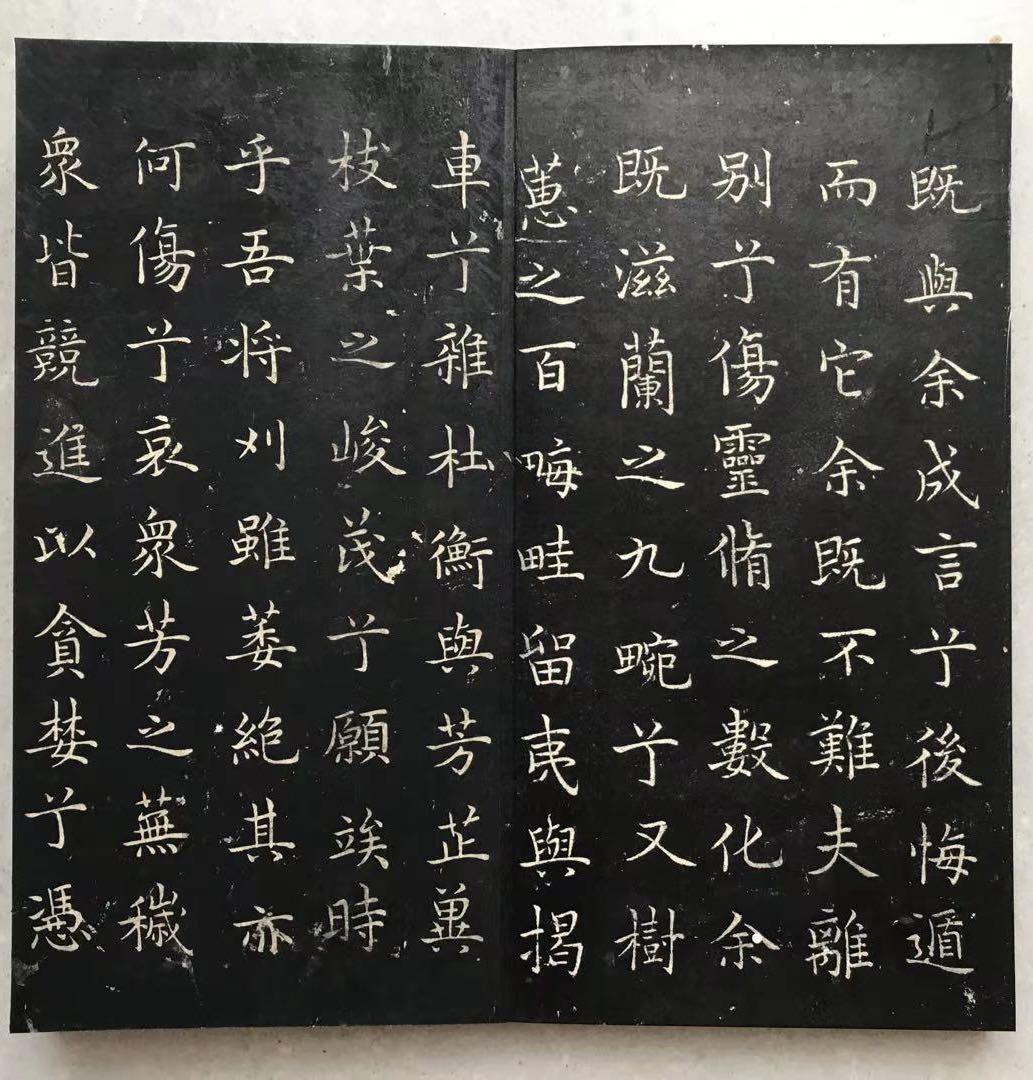 既與余成言兮後悔遁
而有它余既不難夫離
別兮傷靈脩之數化余
既滋蘭之九畹兮又樹
蕙之百畮畦留夷與揭
車兮雜杜衡與芳芷兾
枝葉之峻茂兮願竢時
乎吾将刈雖萎絶其亦
何傷兮哀衆芳之蕪穢
衆皆競進以貪婪兮憑